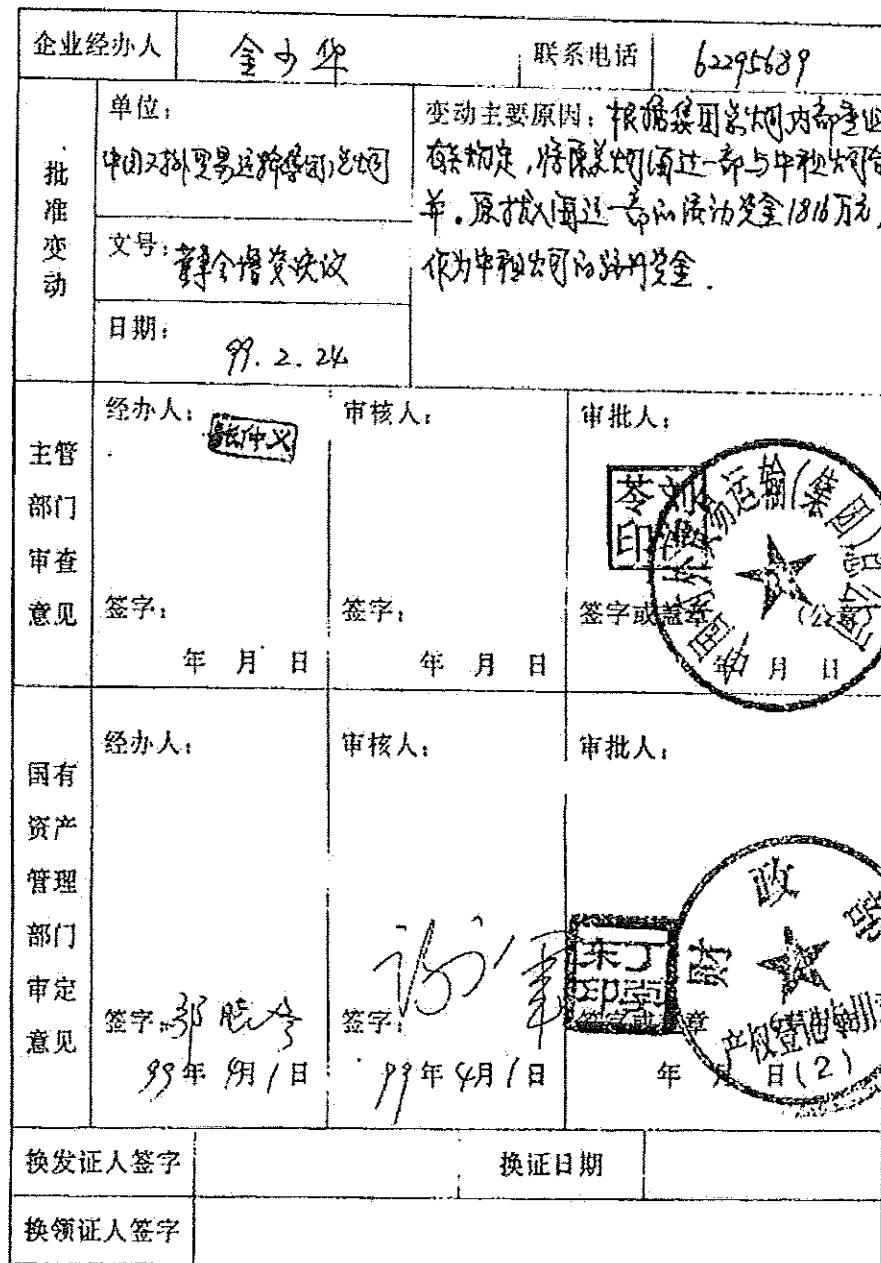 企业经办人 金少华 联系电话 62295689
批准变动
单位：
中国对外贸易运输(集团)总公司
文号：董事会增资决议
日期：
99.2.24
变动主要原因：根据集团总公司内部专业
有关规定，将原总公司海运一部与中租公司合
并。原拨入海运一部的流动资金1816万元，
作为中租公司的注册资金．
主管部门审查意见
经办人：
张仲义
签字：
年 月 日
审核人：
签字：
年 月 日
审批人：
签字或盖章 (公章
年 月 日
中国对外贸易运输(集团)总公司
国有资产管理部门审定意见
经办人：
签字：
99年 4月 1日
审核人：
签字：
99年 4月 1日
审批人：
签字或盖章
年 月 日
财政部
产权登记专用章
(2)
换发证人签字 换证日期
换领证人签字